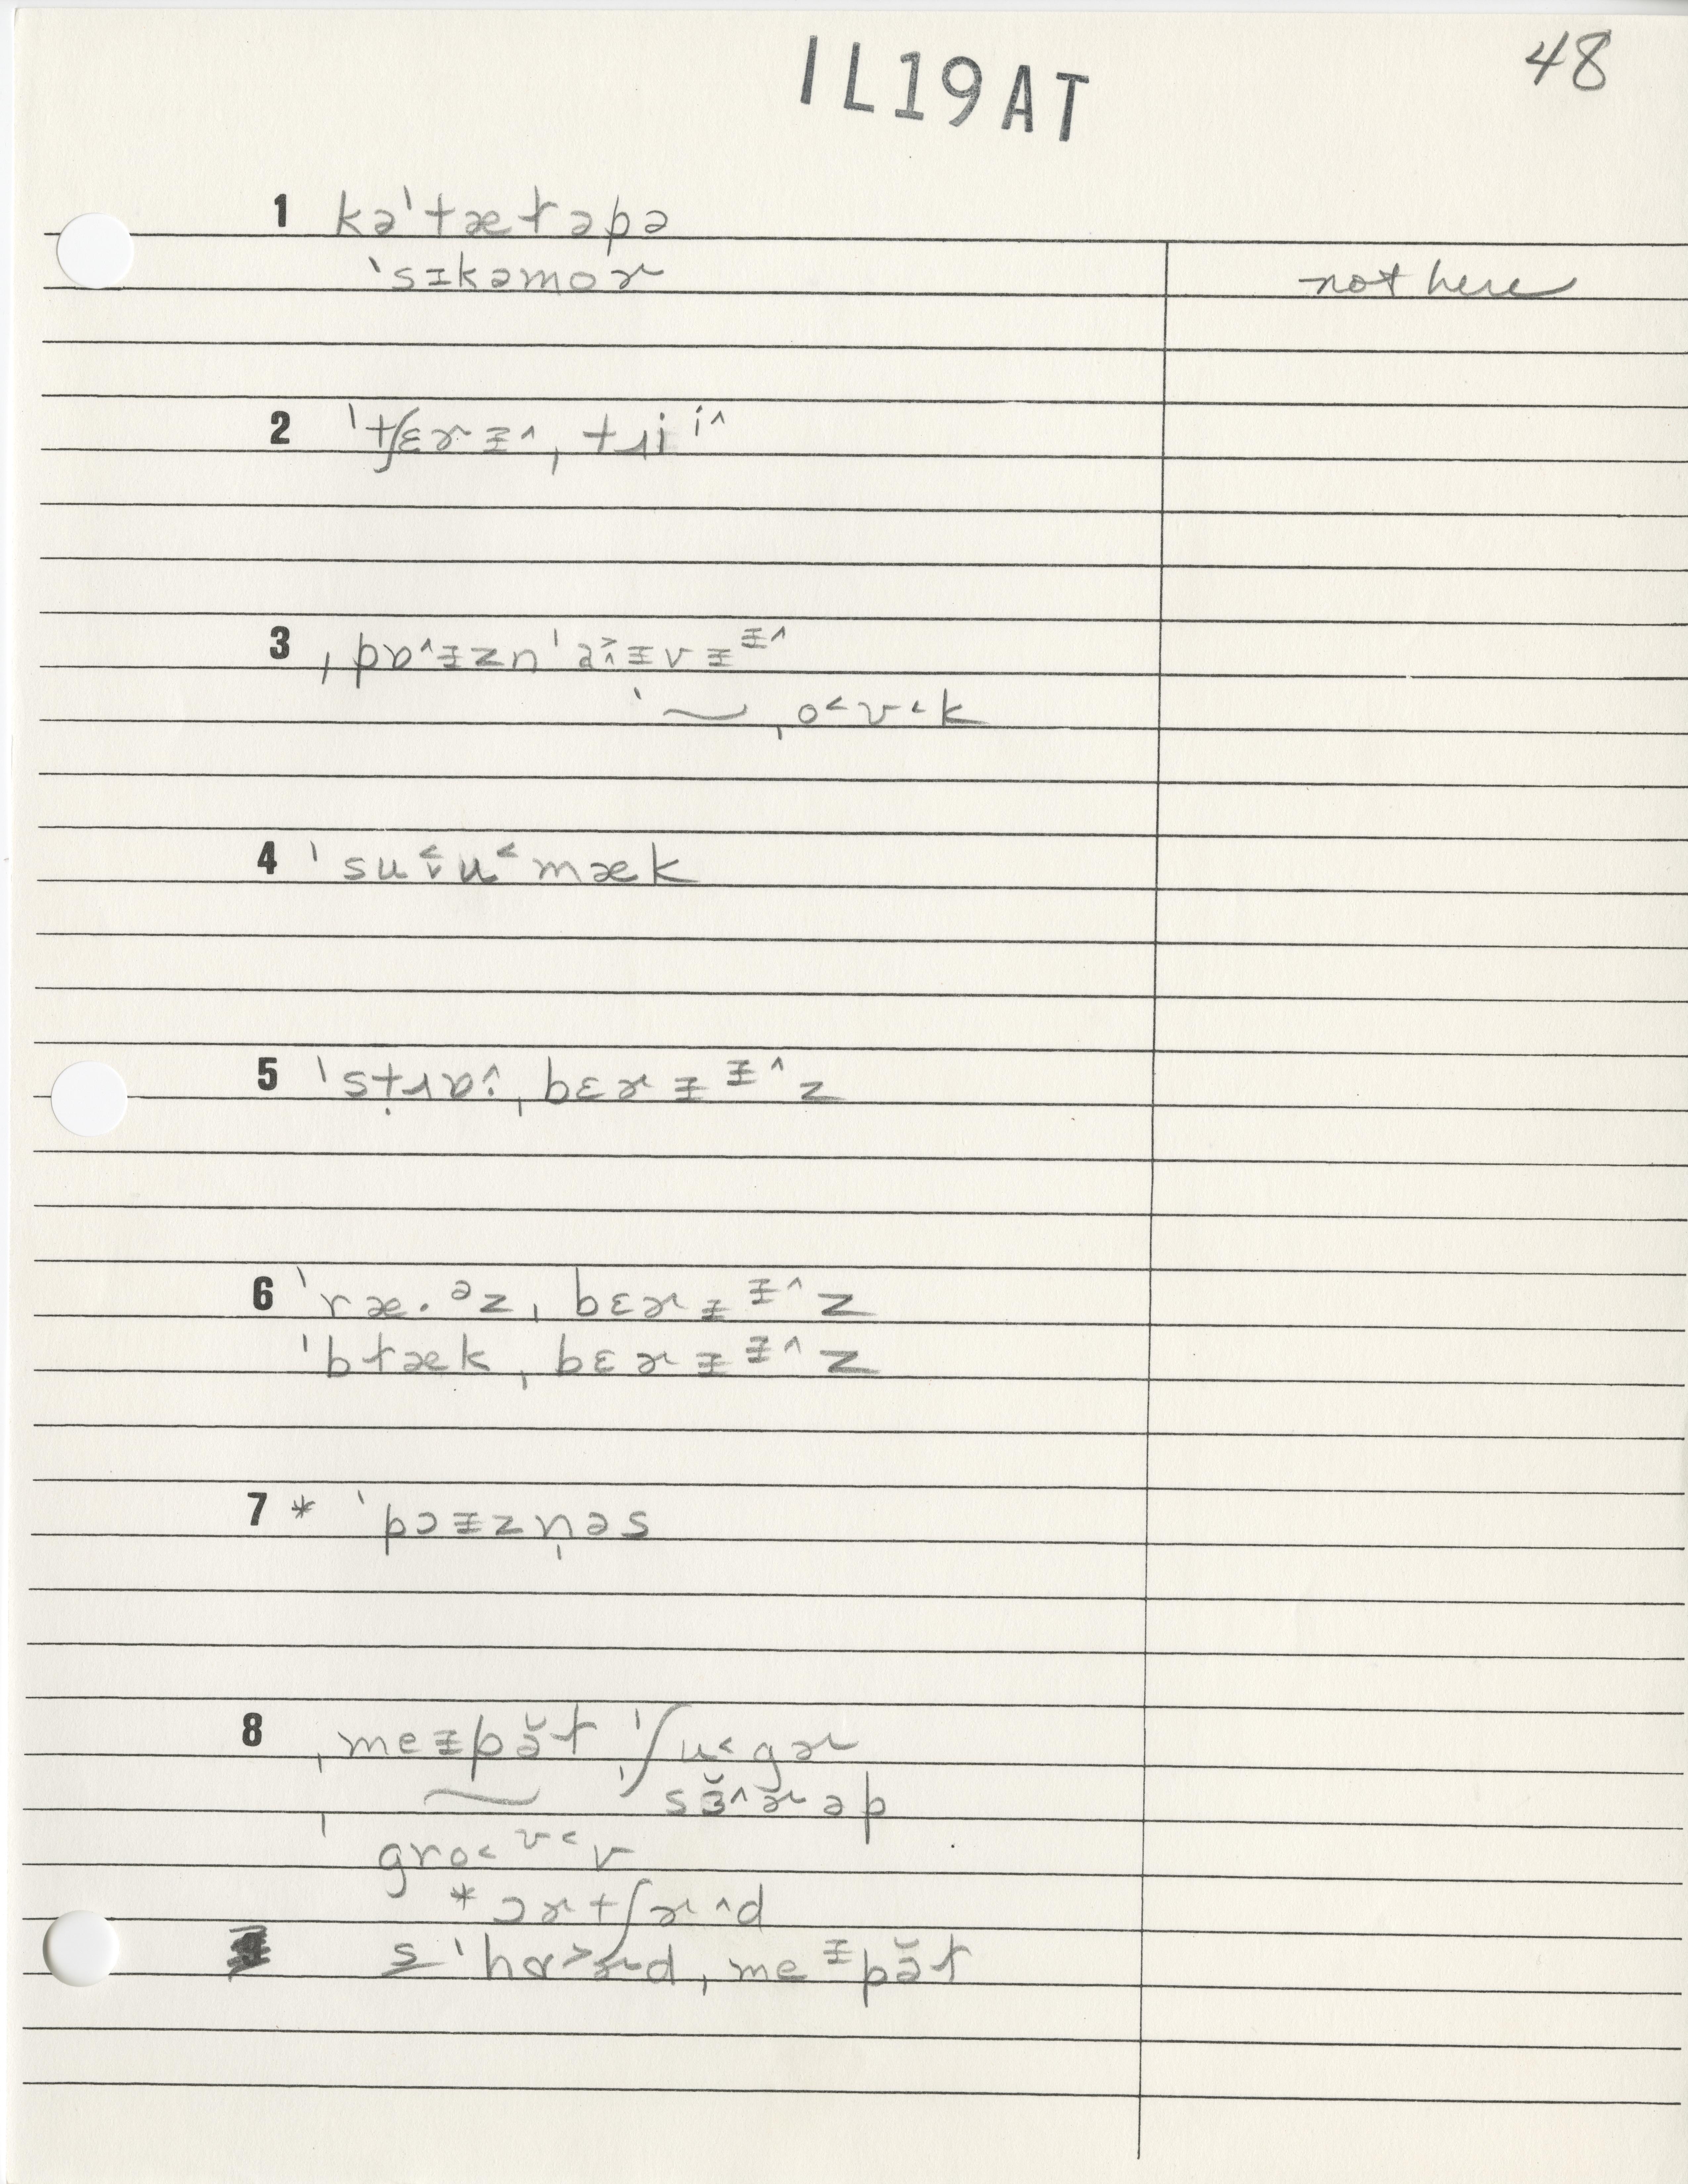 IL19AT
48
1 kəˈtæɫəpə
ˈsɪkəmoɚ
not here
2 ˈtʃɛrɪ^, tɹii^
3 ˌpɒ^ɪzn ˈaɪvɪɪ^
ˈ~ ˌo<ʊ<k
4 ˈsuʉ<mæk
5 ˈstrɒ, bɛɚɪɪ^z
6 ˈræ·əz, bɛɚɪɪ^z
ˈbɫæk, bɛɚɪɪ^z
7 * ˈpɔɪzn̩əs
8 ˌmeɪpə̆ɫ ˈʃu<gɚ
~ ˌsɜ̆^ɚəp
ˈgro<ʊ<v
* ɔɚtʃɚ^d
s ˈhɑ>ɚd, meɪpə̆ɫ